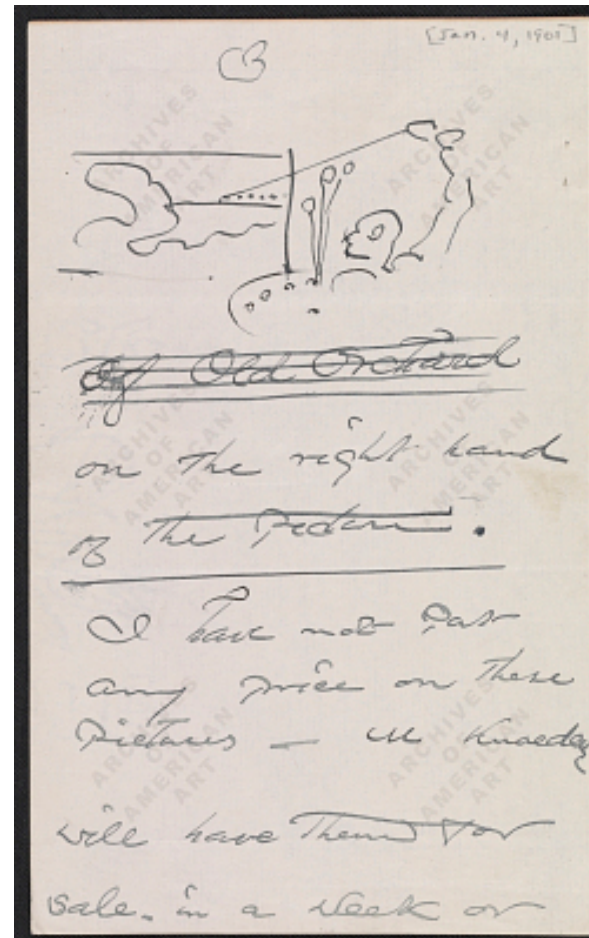 [Jan. 4, 1901]
Of Old Orchard
on the right hand
of the Picture.
I have not put
any price on these
Pictures — M Knoedler
will have them for
sale. in a week or